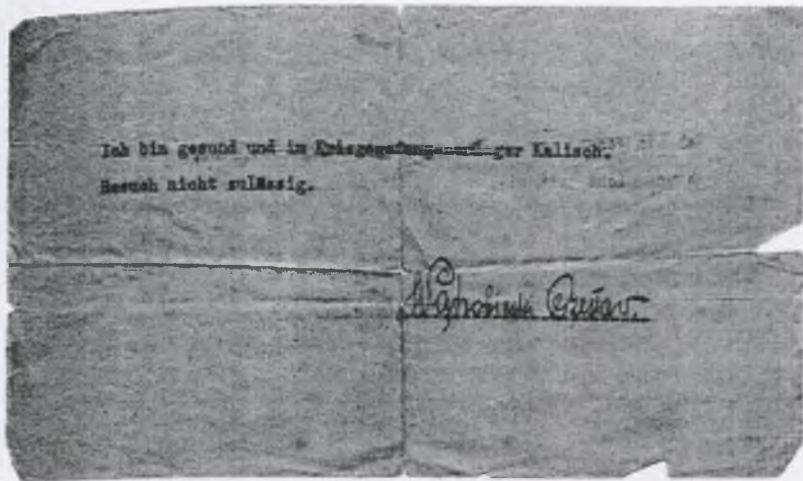 Ich bin gesund und im Kriegsgefangenenlager Kalisch.
Besuch nicht zulässig.